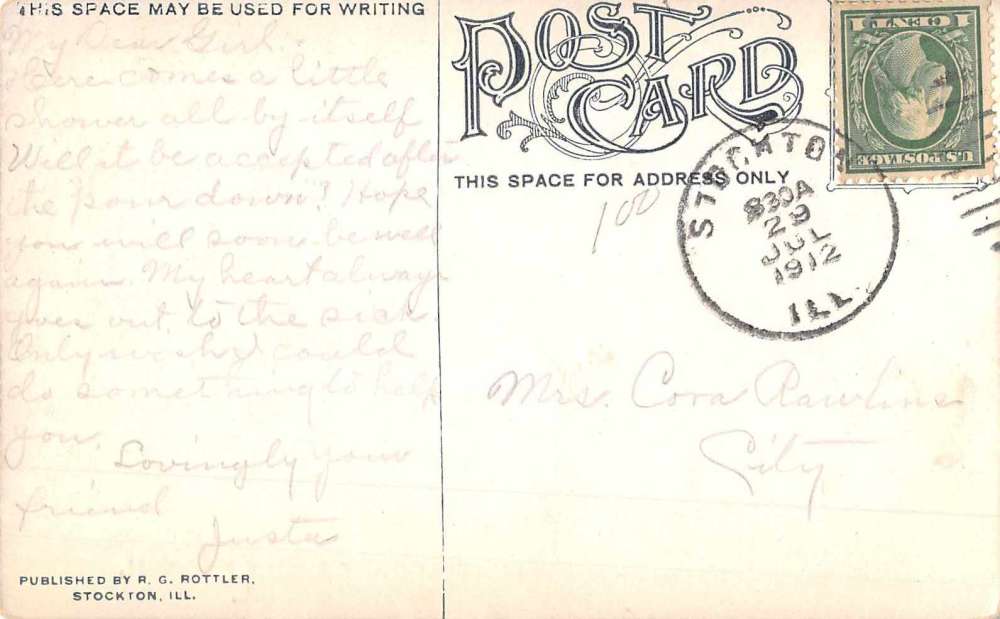 THIS SPACE MAY BE USED FOR WRITING
My Dear Girl.
Here comes a little
shower all by itself
Will it be accepted after
the "pour down"? Hope
you will soon be well
again. My heart always
goes out to the sick
Only wish I could
do something to help
you.
Lovingly your
friend
Justa
PUBLISHED BY R. G. ROTTLER,
STOCKTON, ILL.
POST CARD
THIS SPACE FOR ADDRESS ONLY
100
STOCKTON
830A
29
JUL
1912
ILL.
U.S. POSTAGE
1 ONE 1
Mrs. Cora Rawlins
City